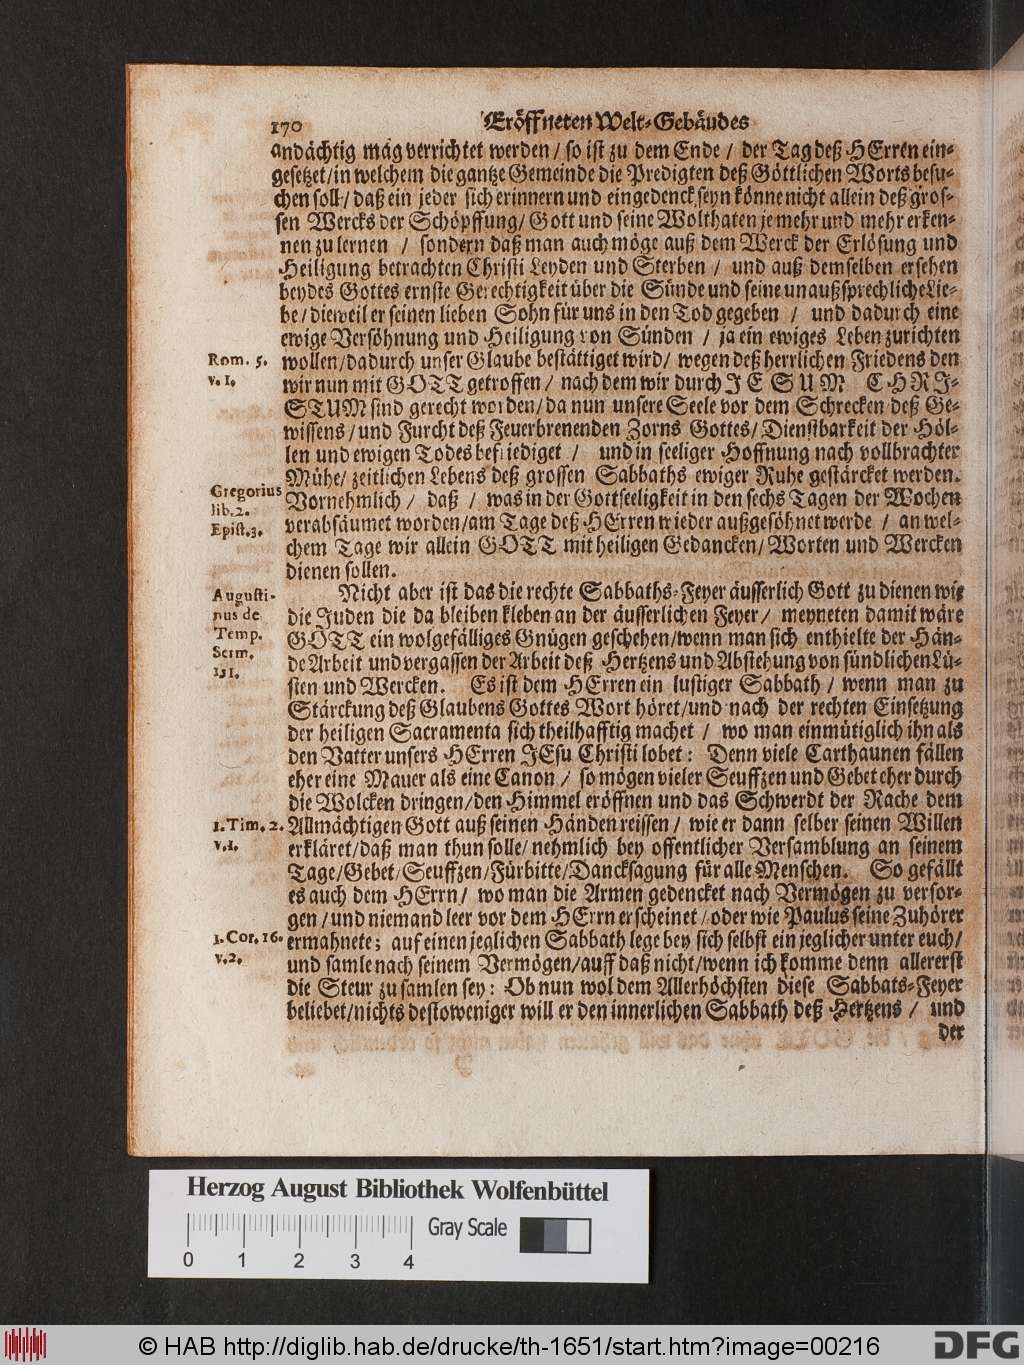 170 Eröffneten Welt-Gebäudes
andächtig mag verrichtet werden / so ist zu dem Ende / der Tag deß HErren ein-
gesetzet / in welchem die gantze Gemeinde die Predigten deß Göttlichen Worts besu-
chen soll / daß ein jeder sich erinnern und eingedenck seyn könne nicht allein deß gros-
sen Wercks der Schöpffung / Gott und seine Wolthaten je mehr und mehr erken-
nen zu lernen / sondern daß man auch möge auß dem Werck der Erlösung und
Heiligung betrachten Christi Leyden und Sterben / und auß demselben ersehen
beydes Gottes ernste Gerechtigkeit über die Sünde und seine unaußsprechliche Lie-
be / dieweil er seinen lieben Sohn für uns in den Tod gegeben / und dadurch eine
ewige Versöhnung und Heiligung von Sünden / ja ein ewiges Leben zurichten
Rom. 5. v. 1.
wollen / dadurch unser Glaube bestättiget wird / wegen deß herrlichen Friedens den
wir nun mit GOTT getroffen / nach dem wir durch JESUM CHRI-
STUM sind gerecht worden / da nun unsere Seele vor dem Schrecken deß Ge-
wissens / und Furcht deß Feuerbrenenden Zorns Gottes / Dienstbarkeit der Höl-
len und ewigen Todes befriediget / und in seeliger Hoffnung nach vollbrachter
Mühe / zeitlichen Lebens deß grossen Sabbaths ewiger Ruhe gestärcket werden.
Gregorius lib. 2. Epist. 3.
Vornehmlich / daß / was in der Gottseeligkeit in den sechs Tagen der Wochen
verabsäumet worden / am Tage deß HErren wieder außgesöhnet werde / an wel-
chem Tage wir allein GOTT mit heiligen Gedancken / Worten und Wercken
dienen sollen.
Augusti-
nus de
Temp.
Serm.
151.
Nicht aber ist das die rechte Sabbaths-Feyer äusserlich Gott zu dienen wie
die Juden die da bleiben kleben an der äusserlichen Feyer / meyneten damit wäre
GOTT ein wolgefälliges Gnügen geschehen / wenn man sich enthielte der Hän-
de Arbeit und vergassen der Arbeit deß Hertzens und Abstehung von sündlichen Lü-
sten und Wercken. Es ist dem HErren ein lustiger Sabbath / wenn man zu
Stärckung deß Glaubens Gottes Wort höret / und nach der rechten Einsetzung
der heiligen Sacramenta sich theilhafftig machet / wo man einmütiglich ihn als
den Vatter unsers HErren JEsu Christi lobet: Denn viele Carthaunen fällen
eher eine Mauer als eine Canon / so mögen vieler Seuffzen und Gebet eher durch
die Wolcken dringen / den Himmel eröffnen und das Schwerdt der Rache dem
1. Tim. 2. v. 1.
Allmächtigen Gott auß seinen Händen reissen / wie er dann selber seinen Willen
erkläret / daß man thun solle / nehmlich bey offentlicher Versamblung an seinem
Tage / Gebet / Seuffzen / Fürbitte / Dancksagung für alle Menschen. So gefällt
es auch dem HErrn / wo man die Armen gedencket nach Vermögen zu versor-
gen / und niemand leer vor dem HErrn erscheinet / oder wie Paulus seine Zuhörer
1. Cor. 16. v. 2.
ermahnete; auf einen jeglichen Sabbath lege bey sich selbst ein jeglicher unter euch /
und samle nach seinem Vermögen / auff daß nicht / wenn ich komme denn allererst
die Steur zu samlen sey: Ob nun wol dem Allerhöchsten diese Sabbats-Feyer
beliebet / nichts destoweniger will er den innerlichen Sabbath deß Hertzens / und
der
Herzog August Bibliothek Wolfenbüttel
Gray Scale
0 1 2 3 4
© HAB http://diglib.hab.de/drucke/th-1651/start.htm?image=00216
DFG